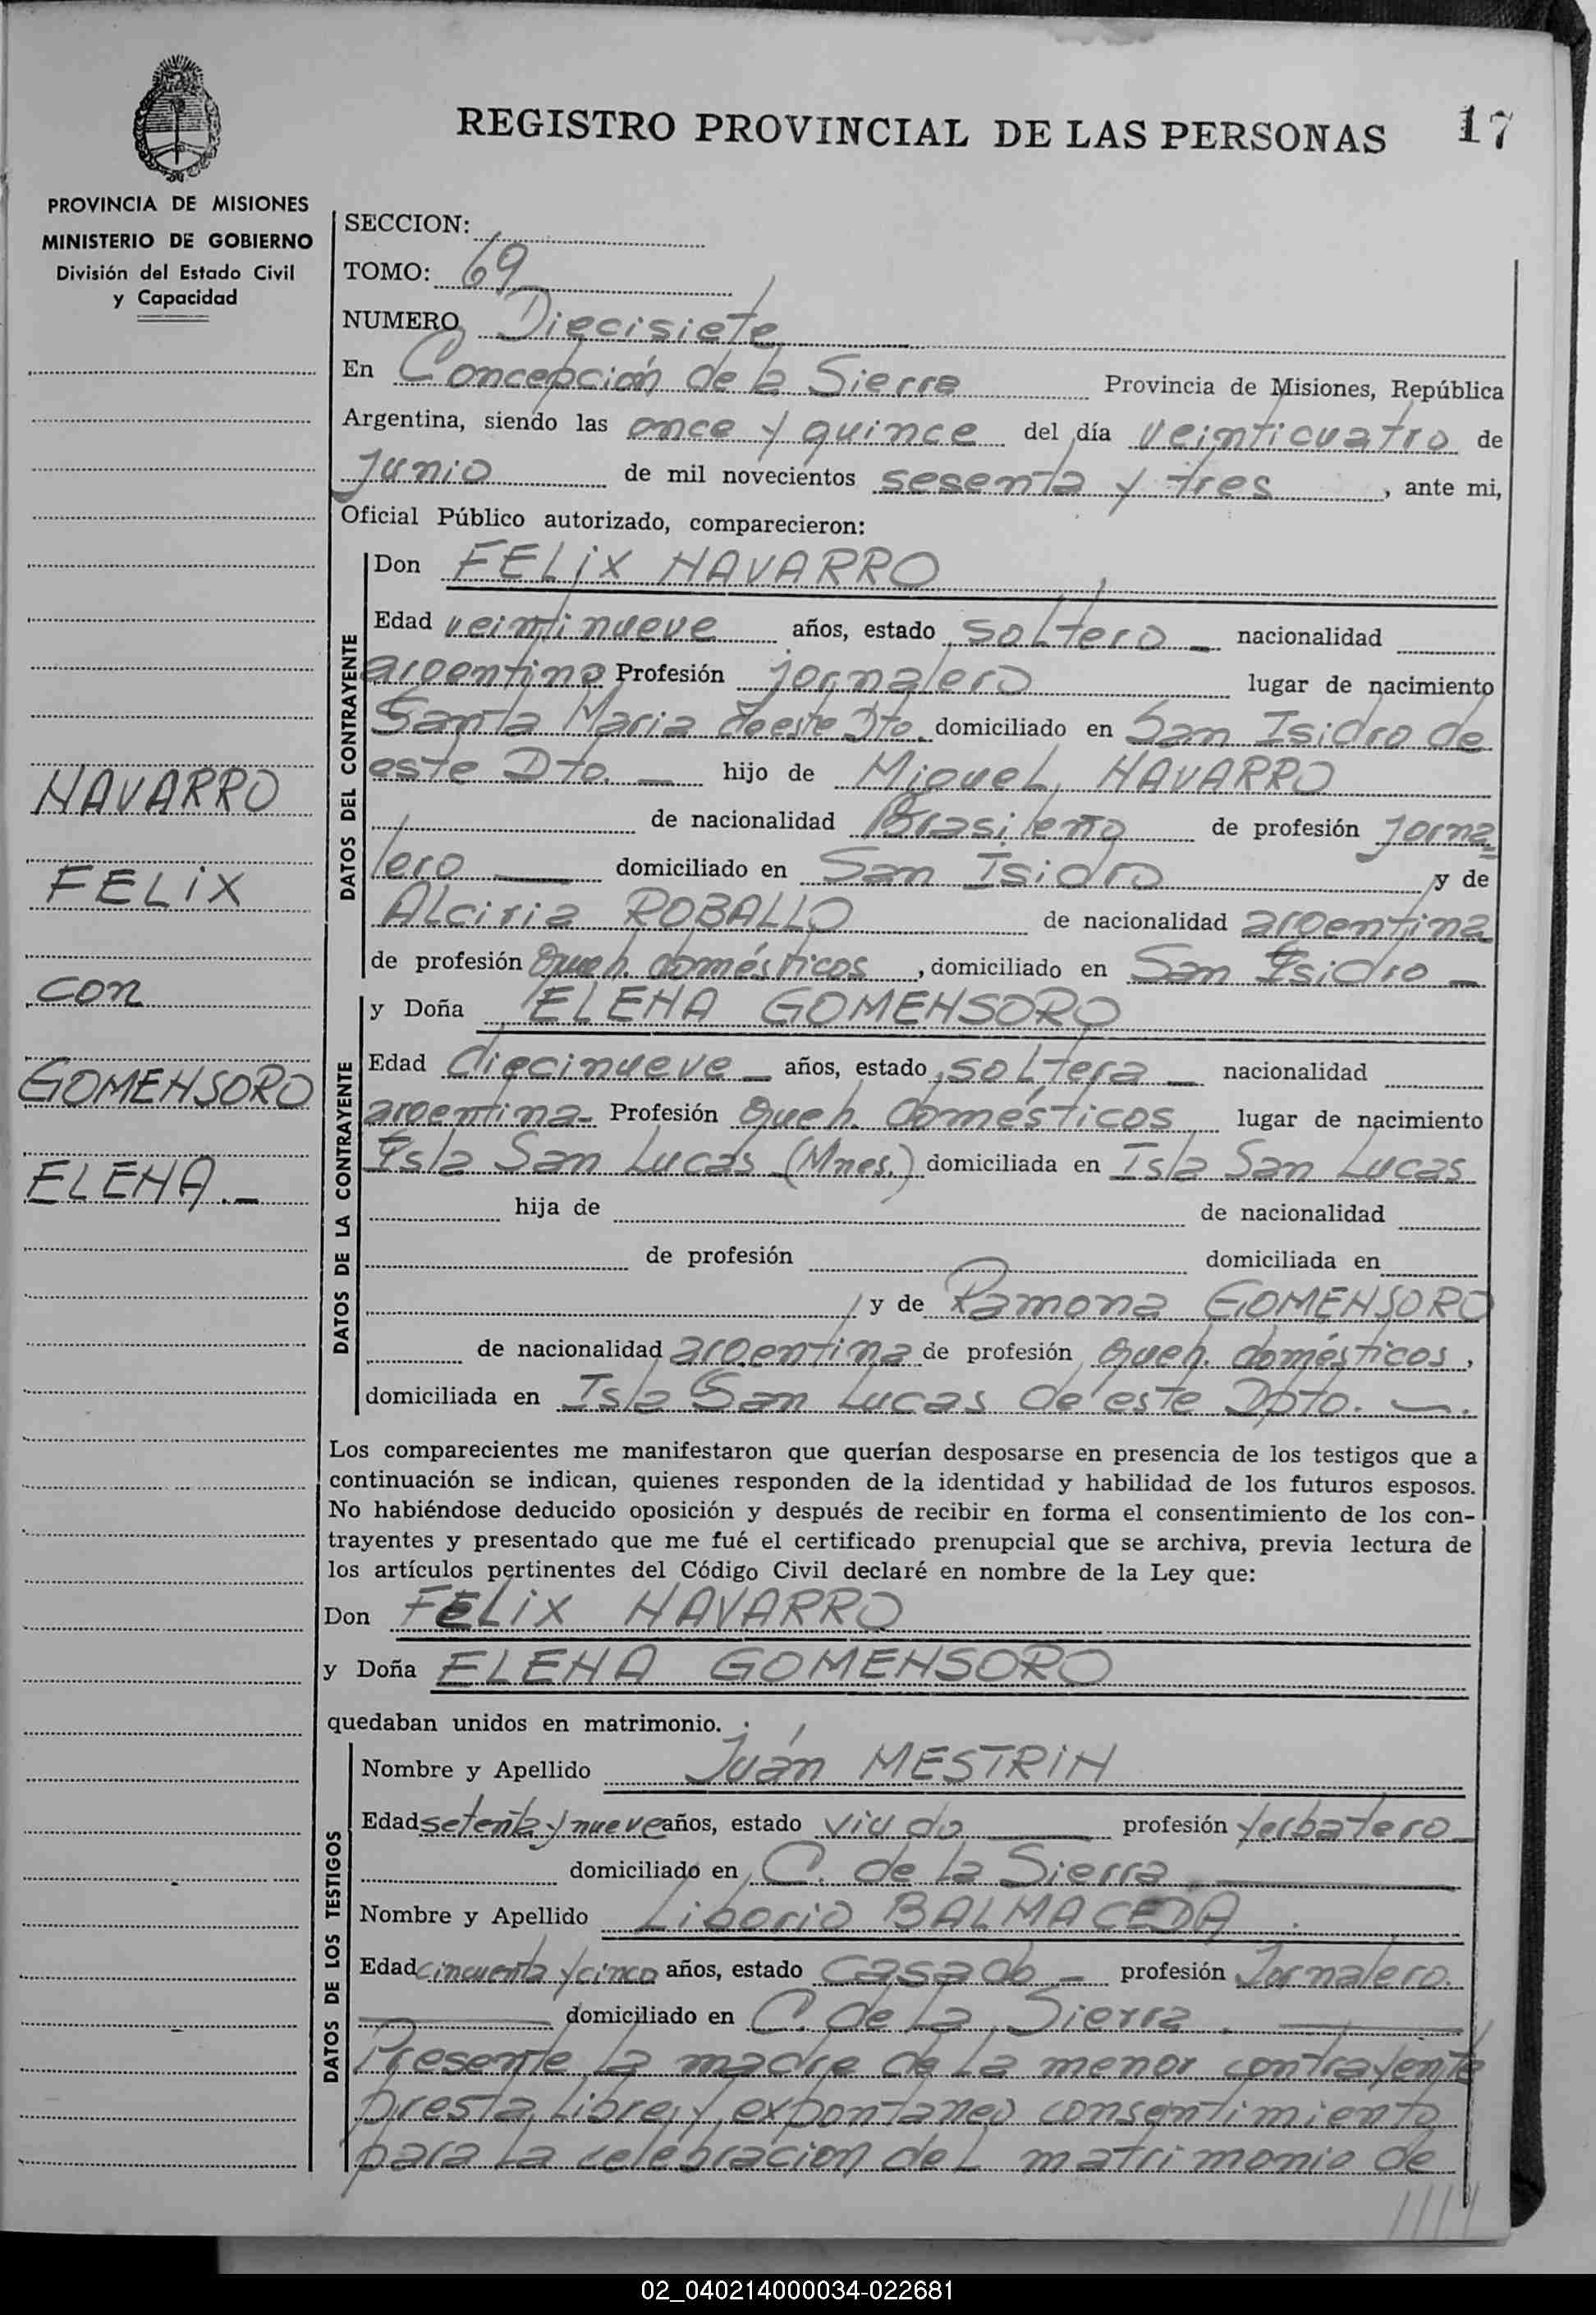 REGISTRO PROVINCIAL DE LAS PERSONAS 17
PROVINCIA DE MISIONES
MINISTERIO DE GOBIERNO
División del Estado Civil
y Capacidad
NAVARRO
FELIX
con
GOMENSORO
ELENA.-
SECCION:
TOMO: 69
NUMERO Diecisiete
En Concepción de la Sierra Provincia de Misiones, República
Argentina, siendo las once y quince del día veinticuatro de
Junio de mil novecientos sesenta y tres, ante mi,
Oficial Público autorizado, comparecieron:
DATOS DEL CONTRAYENTE
Don FELIX NAVARRO
Edad veintinueve años, estado soltero - nacionalidad
argentino Profesión jornalero lugar de nacimiento
Santa Maria de este Dto. domiciliado en San Isidro de
este Dto. - hijo de Miguel NAVARRO
de nacionalidad Brasileño de profesión Jorna
lero - domiciliado en San Isidro y de
Alciria ROBALLO de nacionalidad argentina
de profesión Queh. domésticos, domiciliado en San Isidro -
DATOS DE LA CONTRAYENTE
y Doña ELENA GOMENSORO
Edad diecinueve - años, estado soltera - nacionalidad
argentina- Profesión Queh. domésticos lugar de nacimiento
Isla San Lucas (Mnes.) domiciliada en Isla San Lucas
hija de de nacionalidad
de profesión domiciliada en
y de Ramona GOMENSORO
de nacionalidad argentina de profesión Queh. domésticos,
domiciliada en Isla San Lucas de este Dpto. -.
Los comparecientes me manifestaron que querían desposarse en presencia de los testigos que a
continuación se indican, quienes responden de la identidad y habilidad de los futuros esposos.
No habiéndose deducido oposición y después de recibir en forma el consentimiento de los con-
trayentes y presentado que me fué el certificado prenupcial que se archiva, previa lectura de
los artículos pertinentes del Código Civil declaré en nombre de la Ley que:
Don FELIX NAVARRO
y Doña ELENA GOMENSORO
quedaban unidos en matrimonio.
DATOS DE LOS TESTIGOS
Nombre y Apellido Juán MESTRIN
Edad setenta y nueve años, estado viudo - profesión Yerbatero -
domiciliado en C. de la Sierra -
Nombre y Apellido Liborio BALMACEDA.
Edad cincuenta y cinco años, estado casado - profesión Jornalero.
- domiciliado en C. de la Sierra. -
Presente la madre de la menor contrayente
presta libre y expontaneo consentimiento
para la celebracion del matrimonio de
////
02_040214000034-022681